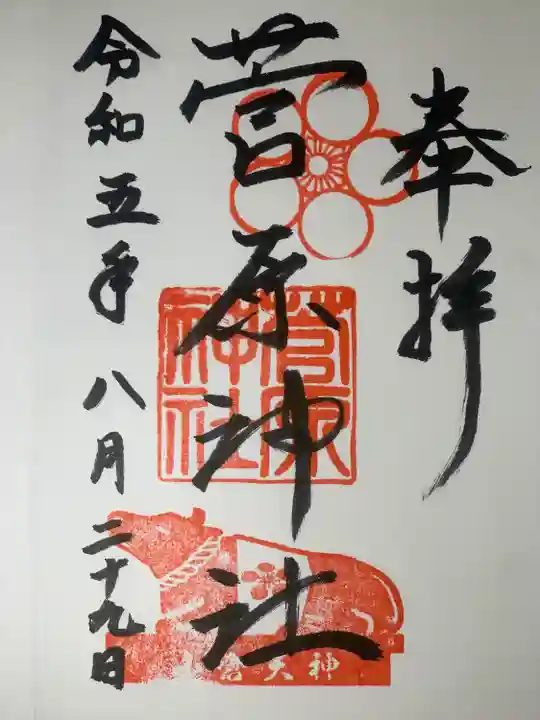 奉拝
菅原神社
令和五年八月二十九日
菅原
神社